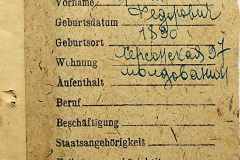 Vorname
Федорович
Geburtsdatum 1890
Geburtsort Херсонская 97
Wohnung молдованин
Aufenthalt
Beruf
Beschäftigung
Staatsangehörigkeit